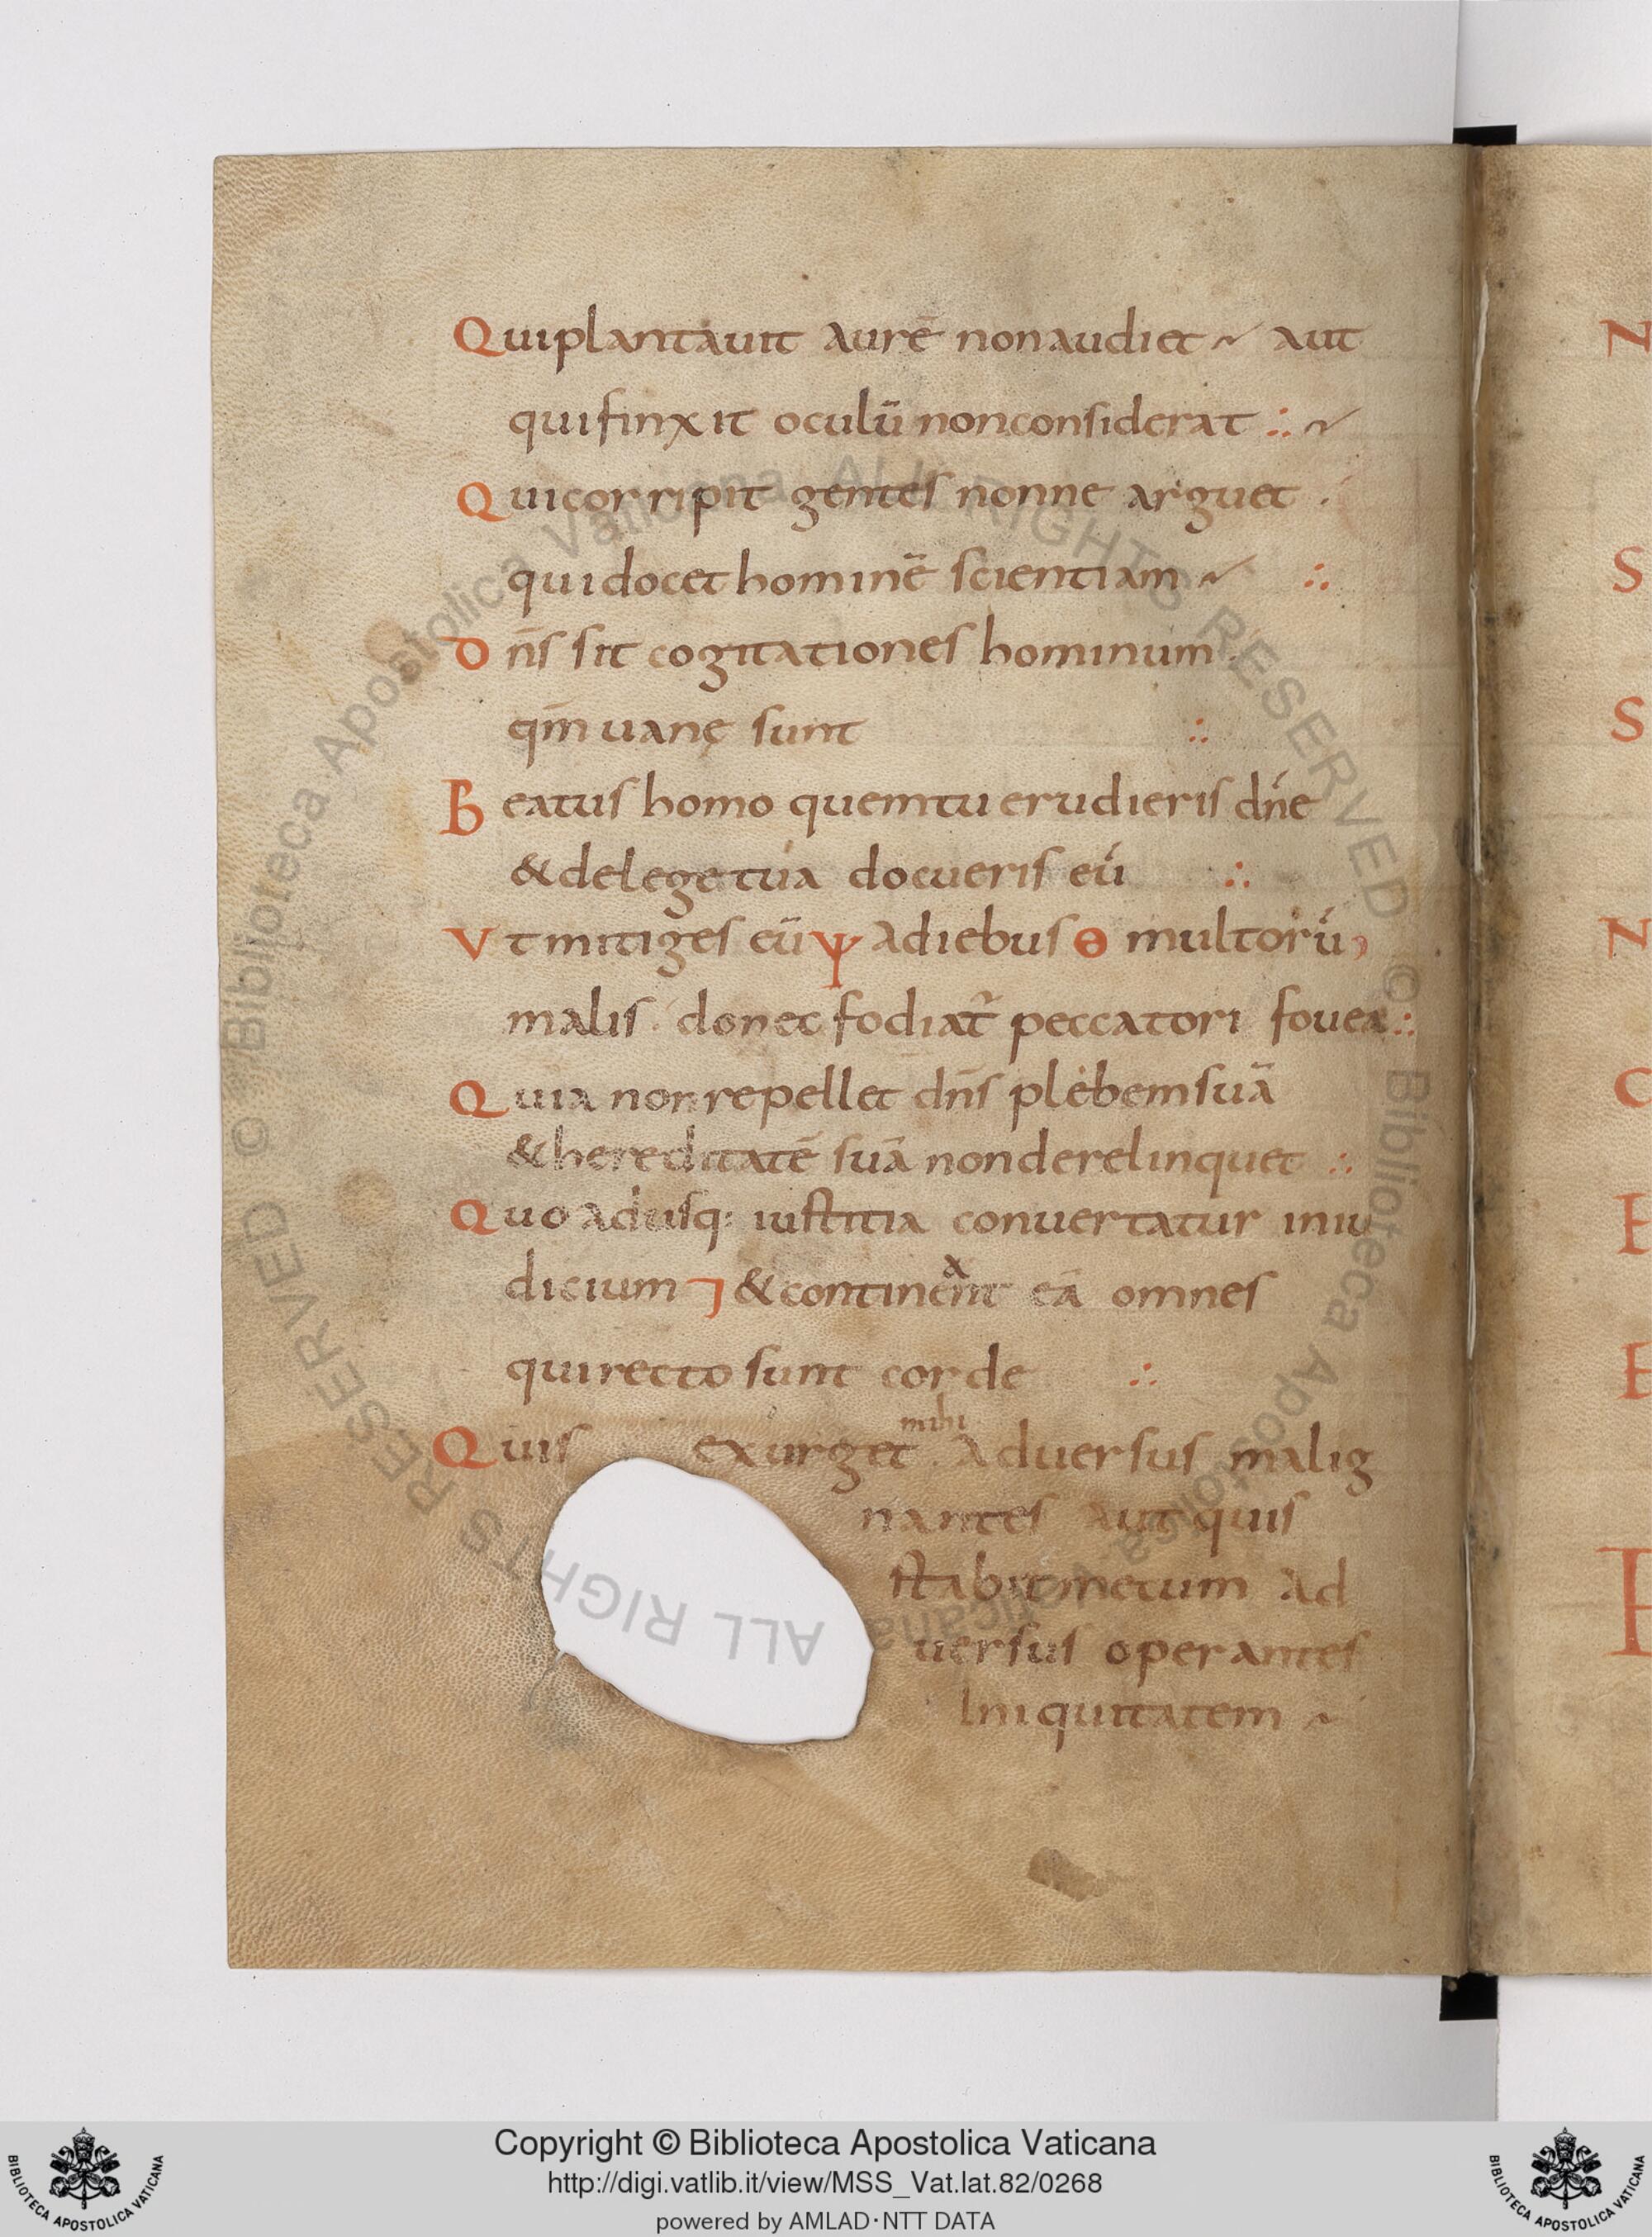 Qui plantauit aurē non audiet aut
qui finxit oculū non considerat ∴
Qui corripit gentes nonne arguet .
qui docet hominē scientiam ∴
Dn̄s sit cogitationes hominum .
qm̄ uanę sunt ∴
Beatus homo quem tu erudieris dn̄e
& de lege tua docueris eū ∴
Vt mitiges eū ψ a diebus ө multorū
malis . donec fodiat᷑ peccatori fouea ∴
Quia non repellet dn̄s plebem suā
& hereditatē suā non derelinquet ∴
Quo adusq: iustitia conuertatur in iu
dicium ⁊ & continent eā omnes
a
qui recto sunt corde ∴
mihi
Quis exurget . aduersus malig
nantes aut quis
stabit mecum ad
uersus operantes
Iniquitatem
N
S
S
N
C
E
E
© Biblioteca Apostolica Vaticana ALL RIGHTS RESERVED
© Biblioteca Apostolica Vaticana ALL RIGHTS RESERVED
Copyright © Biblioteca Apostolica Vaticana
http://digi.vatlib.it/view/MSS_Vat.lat.82/0268
powered by AMLAD·NTT DATA
BIBLIOTECA APOSTOLICA VATICANA
BIBLIOTECA APOSTOLICA VATICANA